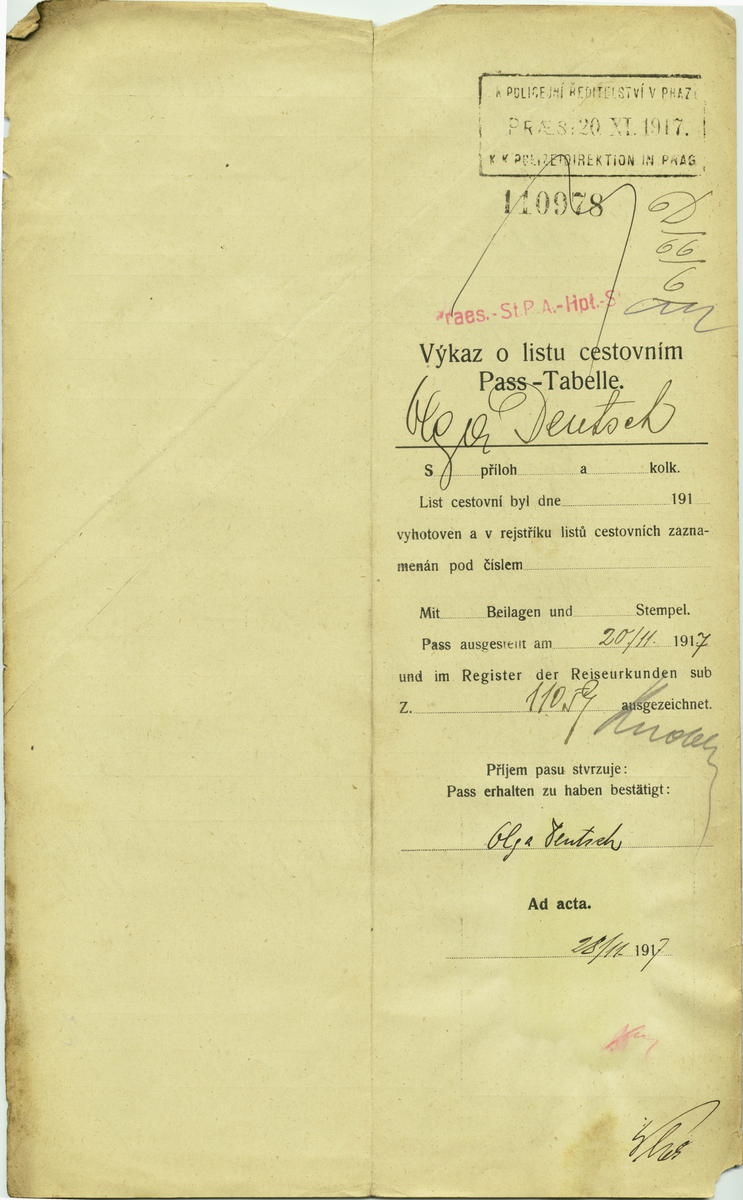 K POLICEJNÍ ŘEDITELSTVÍ V PRAZE
PRÆS: 20 XI. 1917.
K K POLIZEIDIREKTION IN PRAG
110978
D/66/6
Praes.-St.P.A.-Hpt.-S
Výkaz o listu cestovním
Pass-Tabelle.
Olga Deutsch
S příloh a kolk.
List cestovní byl dne 191
vyhotoven a v rejstříku listů cestovních zazna-
menán pod číslem
Mit Beilagen und Stempel.
Pass ausgestellt am 20/11. 1917
und im Register der Reiseurkunden sub
Z. ausgezeichnet.
Příjem pasu stvrzuje:
Pass erhalten zu haben bestätigt:
Olga Deutsch
Ad acta.
28/11. 1917